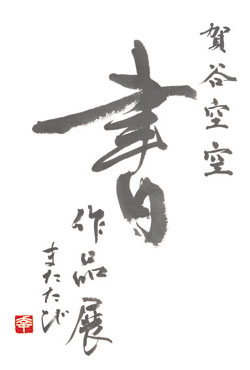 賀谷空空
書
作品展
またたび